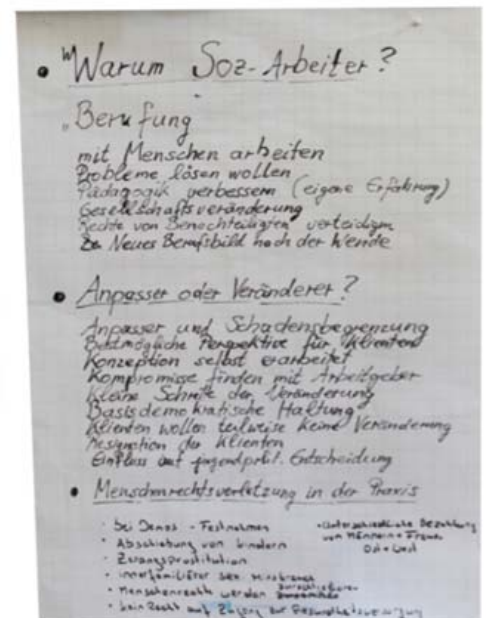 • Warum Soz-Arbeiter?
"Berufung
mit Menschen arbeiten
Probleme lösen wollen
Pädagogik verbessern (eigene Erfahrung)
Gesellschaftsveränderung
Rechte von Benachteiligten verteidigen
Neues Berufsbild nach der Wende
• Anpasser oder Veränderer?
Anpasser und Schadensbegrenzung
Bestmögliche Perspektive für Klienten
Konzeption selbst erarbeitet
Kompromisse finden mit Arbeitgeber
Kleine Schritte der Veränderung
Basisdemokratische Haltung
Klienten wollen teilweise keine Veränderung
Resignation der Klienten
Einfluss auf jugendpol. Entscheidung
• Menschenrechtsverletzung in der Praxis
· bei Demos - Festnahmen
· Abschiebung von Kindern
· Zwangsprostitution
· innerfamiliärer sex. Missbrauch
· Menschenrecht werden
· kein Recht auf Zugang zur Gesundheitsversorgung
· Unterschiedliche Bezahlung
von Männern + Frauen
Ost + West